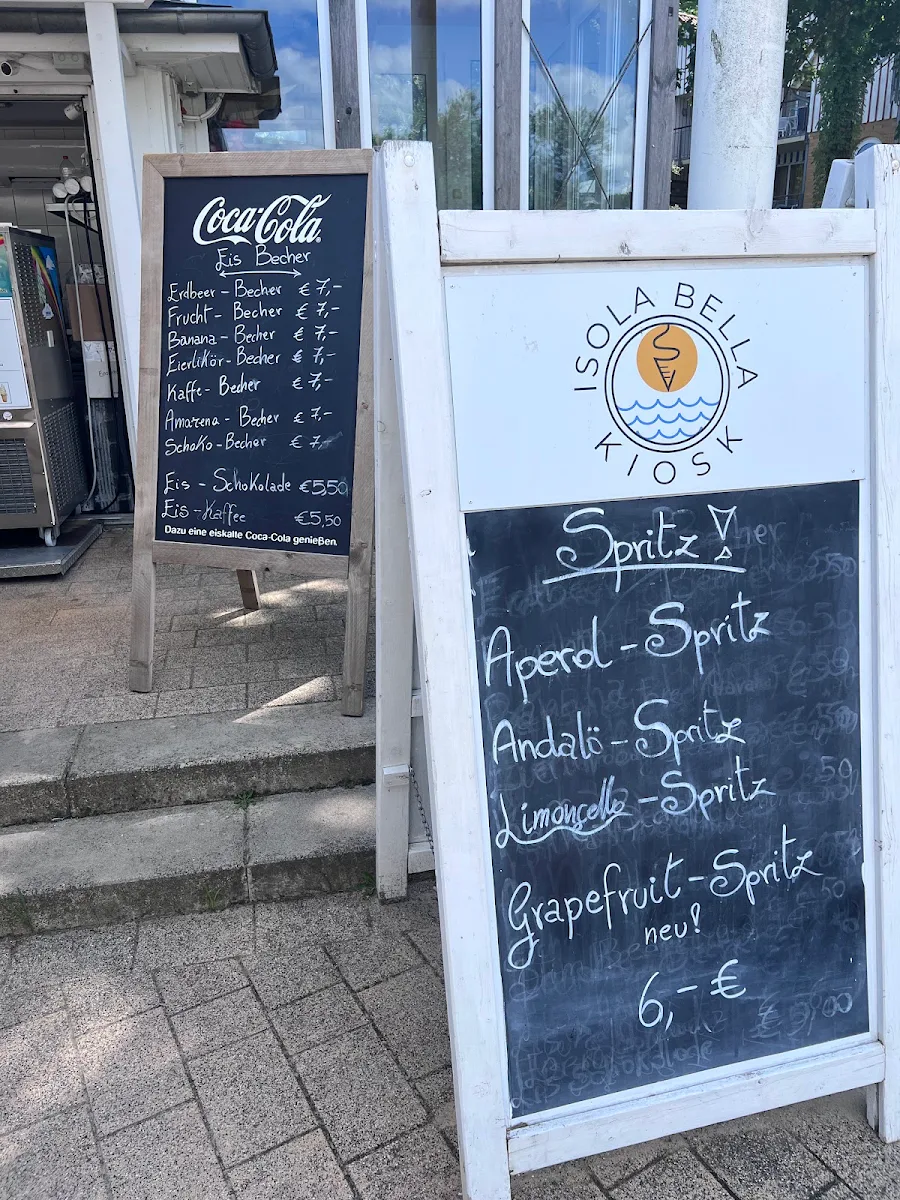 Coca-Cola
Eis Becher
Erdbeer - Becher € 7,-
Frucht - Becher € 7,-
Banana - Becher € 7,-
Eierlikör - Becher € 7,-
Kaffe - Becher € 7,-
Amarena - Becher € 7,-
Schoko - Becher € 7,-
Eis - Schokolade €5,50
Eis - Kaffee €5,50
Dazu eine eiskalte Coca-Cola genießen.
ISOLA BELLA
KIOSK
Spritz!
Aperol - Spritz
Andalö - Spritz
Limoncello - Spritz
Grapefruit - Spritz
neu!
6,- €